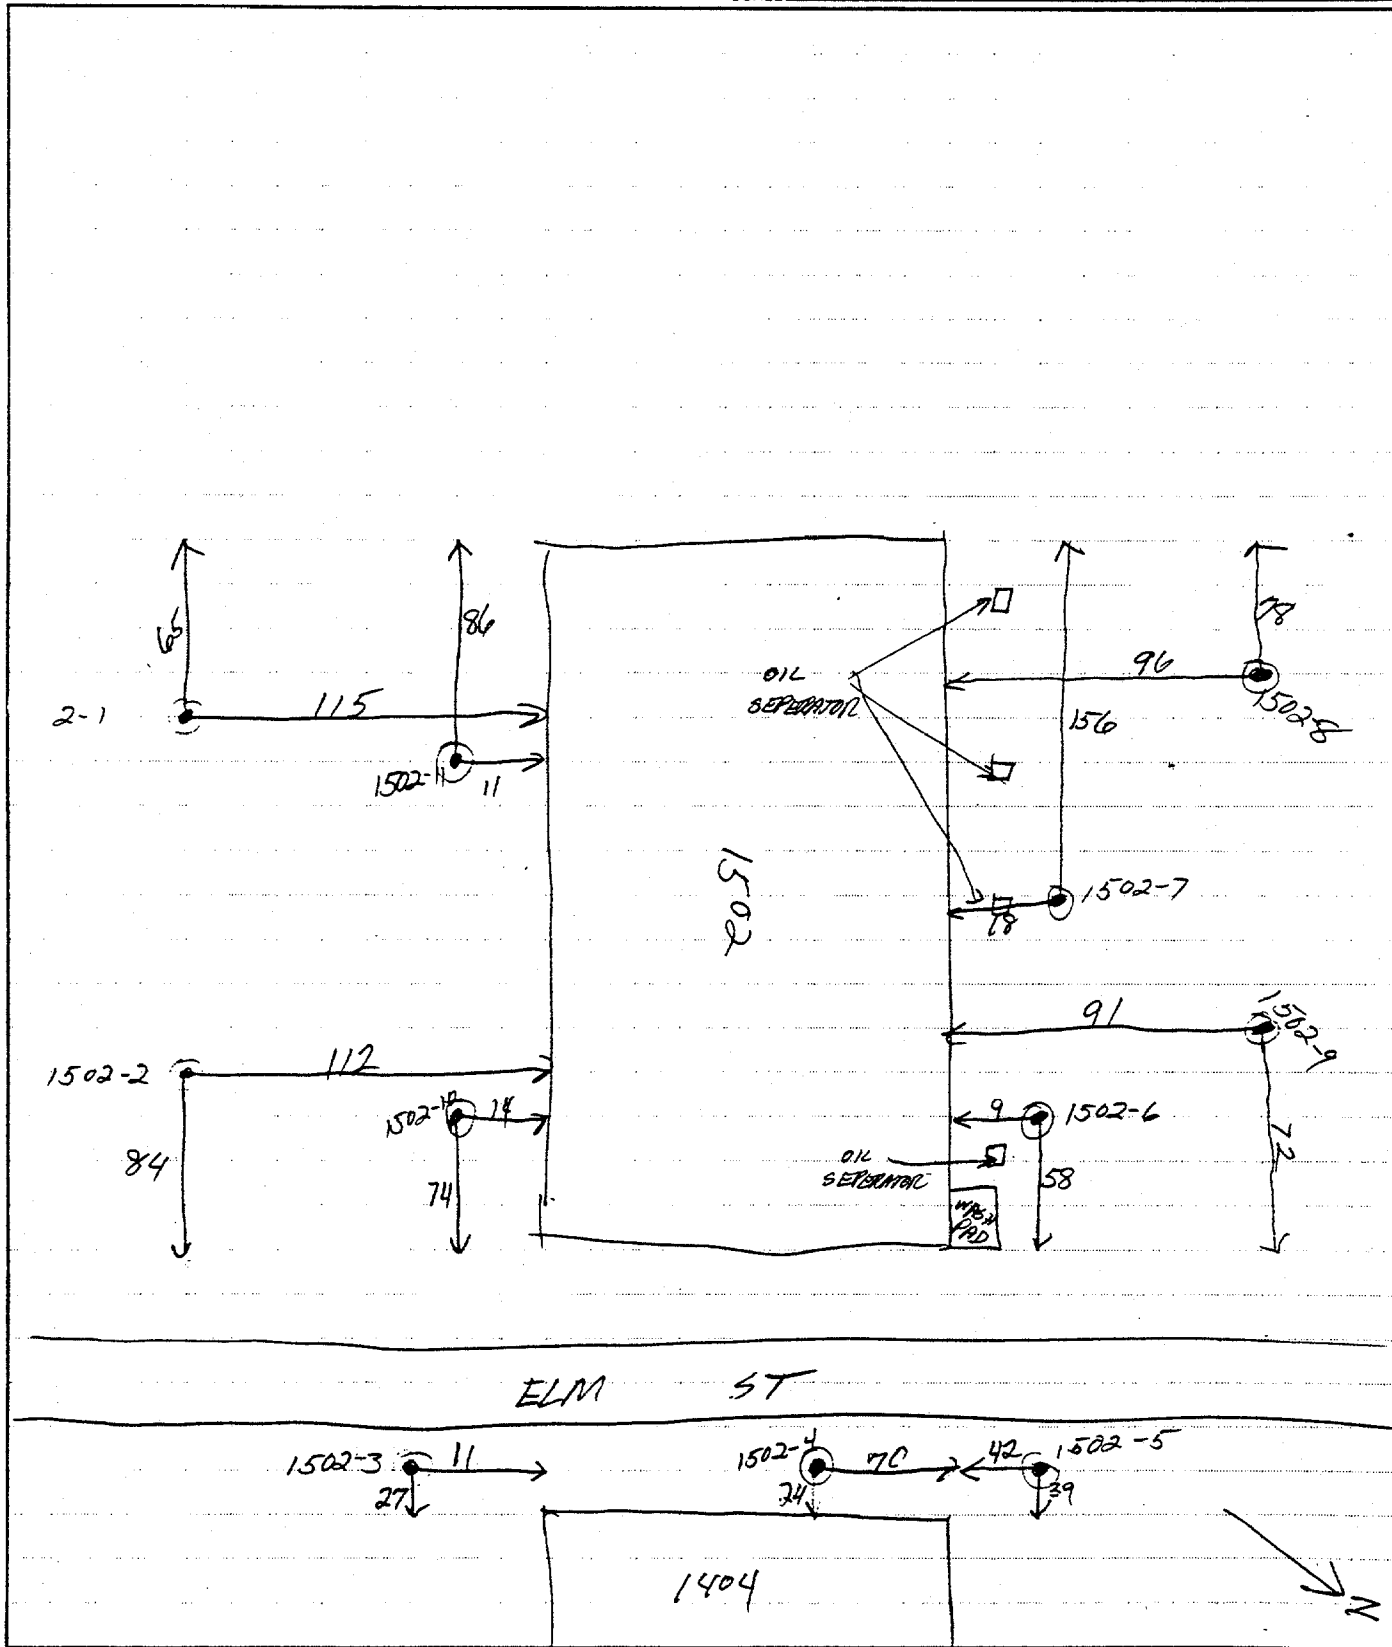 86
78
96
OIL
SEPERATOR
1502-8
2-1
115
156
1502-11
11
1502
1502-7
18
91
1502-9
1502-2
112
1502-10
14
9
1502-6
84
74
OIL
SEPERATOR
58
72
WASH
PAD
ELM ST
1502-3
11
1502-4
70
42
1502-5
27
24
39
1404
N